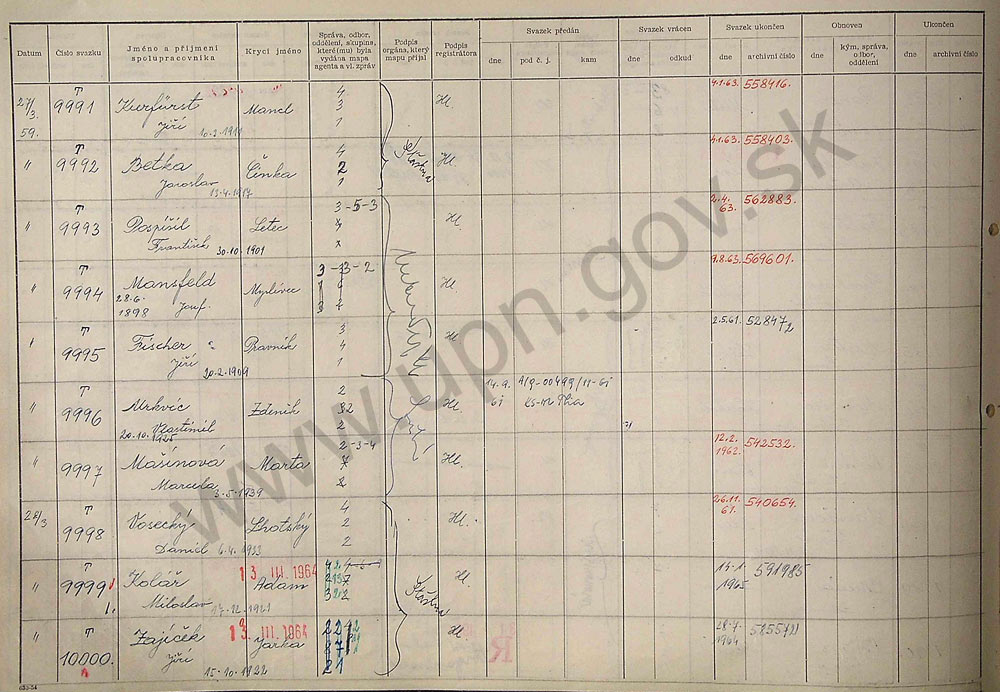 Datum
Číslo svazku
Jméno a příjmení
spolupracovníka
Krycí jméno
Správa, odbor,
oddělení, skupina,
které(mu) byla
vydána mapa
agenta a vl. zpráv
Podpis
orgána, který
mapu přijal
Podpis
registrátora
Svazek předán
dne
pod č. j.
kam
Svazek vrácen
dne
odkud
Svazek ukončen
dne
archivní číslo
Obnoven
dne
kým, správa,
odbor,
oddělení
Ukončen
dne
archivní číslo
27/
3.
59.
T
9991
Kurfürst
Jiří
Mancl
4
3
1
Hl.
4.1.63. 558416.
"
T
9992
Betka
Jaroslav
13.4.1917
Činka
4
2
1
Hl.
4.1.63. 558403.
"
T
9993
Pospíšil
František 30.10.1901
Letec
3-5-3
Hl
2.4.
63. 562883.
"
T
9994
Mansfeld
28.6.
1898 Josef.
Myslivec
Hl
9.8.63. 569601.
"
T
9995
Fischer
Jiří
20.2.1909
Právník
3
4
1
Hl
2.5.61. 528472
"
T
9996
Mrkvic
Vlastimil
20.10.1925
Zdeněk
2
32
2
Hl
14.9.
61
A/9-00499/11-61
"
T
9997
Mašínová
Marcela
3.5.1939
Marta
2-3-4
7
2
Hl.
12.2.
1962. 542532.
28/3
T
9998
Vosecký
Daniel 6.4.1933
Lhotský
4
2
2
Hl.
26.11.
61. 540654.
"
T
9999
1.
Kolář
Miloslav 17.12.1921
13 III. 1964
Adam
Hl
14.1.
1965 591985
"
T
10000.
Zajíček
Jiří
15.10.1922
13. III 1964
Jarka
Hl
28.7.
1964
www.upn.gov.sk